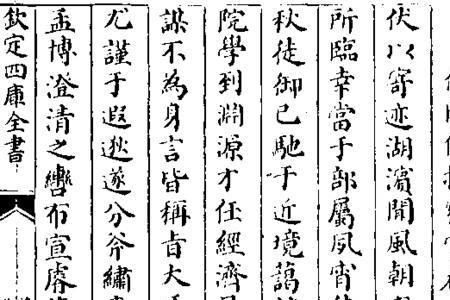 伏以寄迹湖濵聞風朝
所臨幸當于部屬夙宵
秋徒御已馳于近境藹
院學到淵源才任經濟
謀不為身言皆稱旨大
尤謹于遐狄遂分斧繡
孟博澄清之轡布宣睿
欽定四庫全書